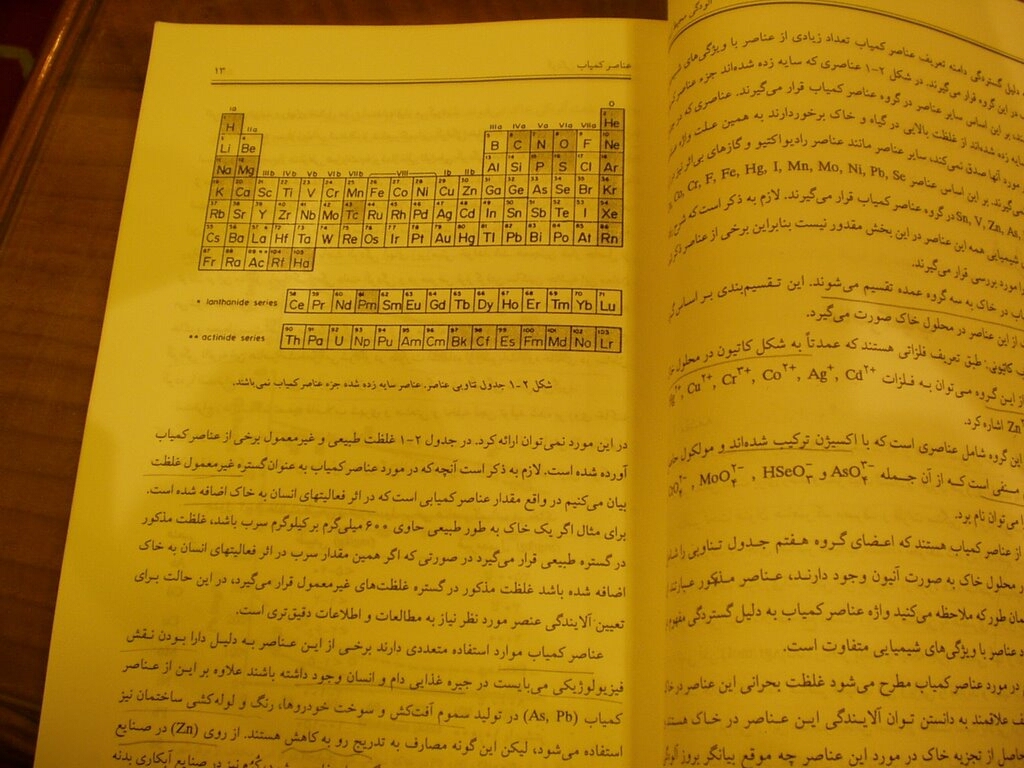 آلودگی محیط
دلیل گستردگی دامنه تعریف عناصر کمیاب تعداد زیادی از عناصر با ویژگی‌های
در این گروه قرار می‌گیرند. در شکل ۲-۱ عناصری که سایه زده شده‌اند جزء عناصر
بر این اساس سایر عناصر در گروه عناصر کمیاب قرار می‌گیرند. عناصری که در
سایه زده شده‌اند از غلظت بالایی در گیاه و خاک برخوردارند به همین علت واژه
مورد آنها صدق نمی‌کند، سایر عناصر مانند عناصر رادیواکتیو و گازهای بی‌اثر نیز
بر این اساس عناصر Co, Cr, F, Fe, Hg, I, Mn, Mo, Ni, Pb, Se
Sn, V, Zn, As, در گروه عناصر کمیاب قرار می‌گیرند. لازم به ذکر است که شرح
شیمیایی همه این عناصر در این بخش مقدور نیست بنابراین برخی از عناصر ذکر
مورد بررسی قرار می‌گیرند.
در خاک به سه گروه عمده تقسیم می‌شوند. این تقسیم‌بندی بر اساس
از این عناصر در محلول خاک صورت می‌گیرد.
کاتیونی: طبق تعریف فلزاتی هستند که عمدتاً به شکل کاتیون در محلول
از این گروه می‌توان به فلزات Cu²⁺, Cr³⁺, Co²⁺, Ag⁺, Cd²⁺
Zn اشاره کرد.
این گروه شامل عناصری است که با اکسیژن ترکیب شده‌اند و مولکول
منفی است که از آن جمله AsO₄³⁻ و HSeO₃⁻, MoO₄²⁻,
می‌توان نام برد.
از عناصر کمیاب هستند که اعضای گروه هفتم جدول تناوبی را
محلول خاک به صورت آنیون وجود دارند، عناصر مذکور عبارتند
همان طور که ملاحظه می‌کنید واژه عناصر کمیاب به دلیل گستردگی مفهوم
عناصر با ویژگی‌های شیمیایی متفاوت است.
در مورد عناصر کمیاب مطرح می‌شود غلظت بحرانی این عناصر در خاک
علاقمند به دانستن توان آلایندگی این عناصر در خاک هستند
حاصل از تجزیه خاک در مورد این عناصر چه موقع بیانگر بروز
عناصر کمیاب ۱۳
Ia O
H IIa IIIa IVa Va VIa VIIa He
Li Be B C N O F Ne
Na Mg IIIb IVb Vb VIb VIIb VIII Ib IIb Al Si P S Cl Ar
K Ca Sc Ti V Cr Mn Fe Co Ni Cu Zn Ga Ge As Se Br Kr
Rb Sr Y Zr Nb Mo Tc Ru Rh Pd Ag Cd In Sn Sb Te I Xe
Cs Ba La Hf Ta W Re Os Ir Pt Au Hg Tl Pb Bi Po At Rn
Fr Ra Ac Rf Ha
* lanthanide series Ce Pr Nd Pm Sm Eu Gd Tb Dy Ho Er Tm Yb Lu
** actinide series Th Pa U Np Pu Am Cm Bk Cf Es Fm Md No Lr
شکل ۲-۱ جدول تناوبی عناصر. عناصر سایه زده شده جزء عناصر کمیاب نمی‌باشند.
در این مورد نمی‌توان ارائه کرد. در جدول ۲-۱ غلظت طبیعی و غیرمعمول برخی از عناصر کمیاب
آورده شده است. لازم به ذکر است آنچه که در مورد عناصر کمیاب به عنوان گستره غیرمعمول غلظت
بیان می‌کنیم در واقع مقدار عناصر کمیابی است که در اثر فعالیتهای انسان به خاک اضافه شده است.
برای مثال اگر یک خاک به طور طبیعی حاوی ۶۰۰ میلی‌گرم بر کیلوگرم سرب باشد، غلظت مذکور
در گستره طبیعی قرار می‌گیرد در صورتی که اگر همین مقدار سرب در اثر فعالیتهای انسان به خاک
اضافه شده باشد غلظت مذکور در گستره غلظت‌های غیرمعمول قرار می‌گیرد، در این حالت برای
تعیین آلایندگی عنصر مورد نظر نیاز به مطالعات و اطلاعات دقیق‌تری است.
عناصر کمیاب موارد استفاده متعددی دارند برخی از این عناصر به دلیل دارا بودن نقش
فیزیولوژیکی می‌بایست در جیره غذایی دام و انسان وجود داشته باشند علاوه بر این از عناصر
کمیاب (As, Pb) در تولید سموم آفت‌کش و سوخت خودروها، رنگ و لوله‌کشی ساختمان نیز
استفاده می‌شود، لیکن این گونه مصارف به تدریج رو به کاهش هستند. از روی (Zn) در صنایع
نیز در صنایع آبکاری بدنه